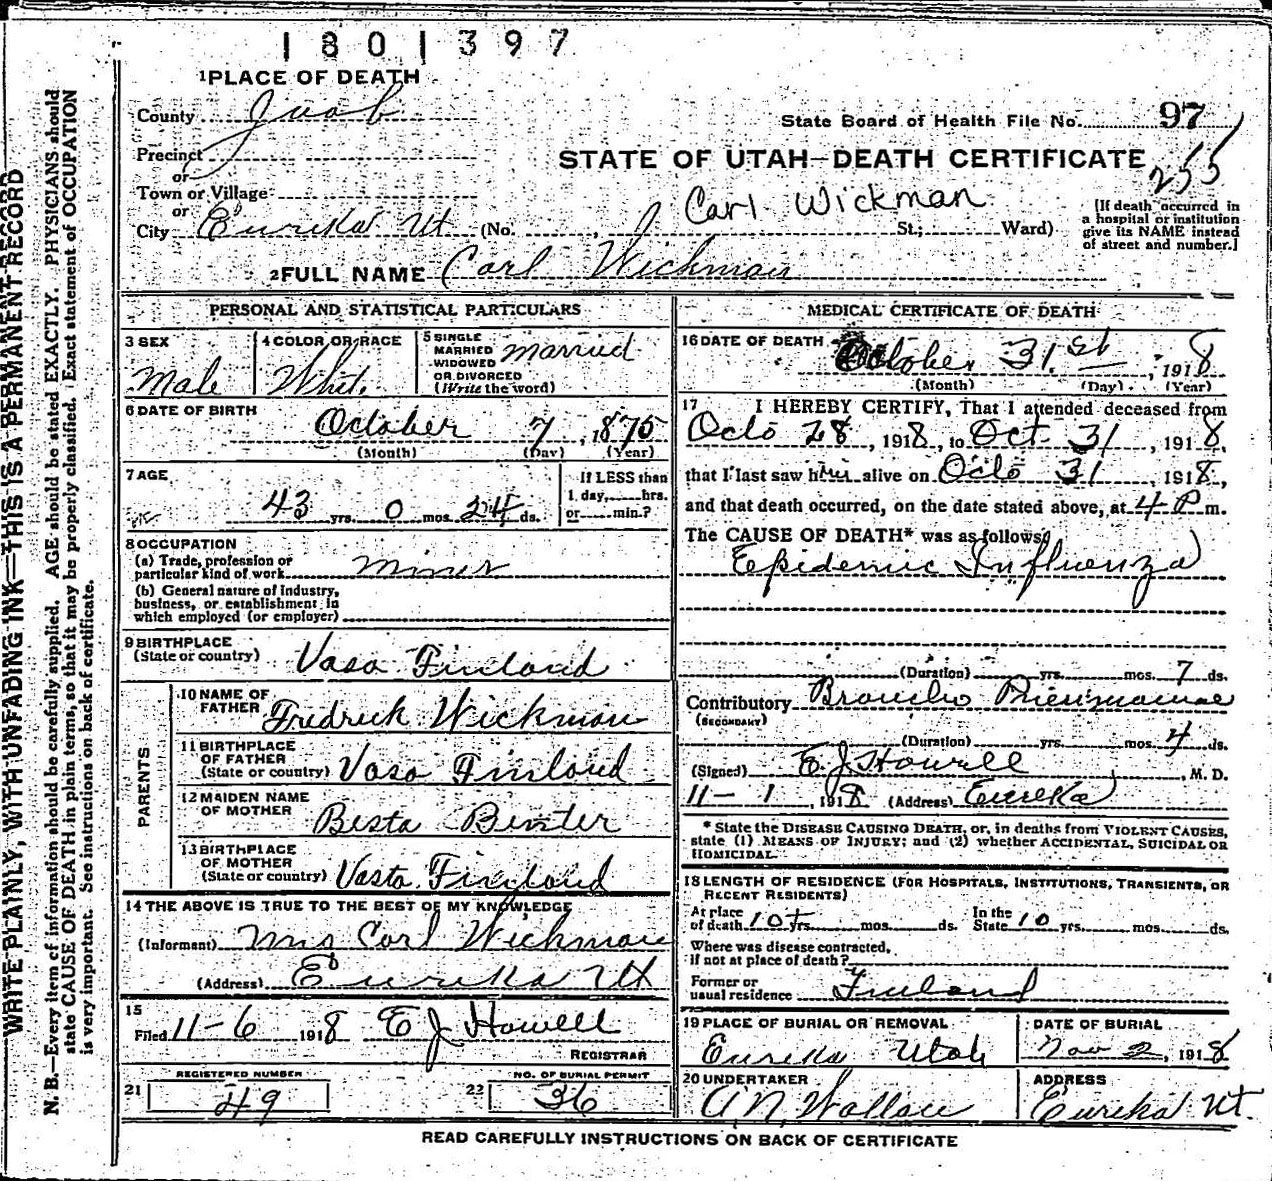 1801397
1 PLACE OF DEATH
County Juab
State Board of Health File No. 97
Precinct
or
STATE OF UTAH—DEATH CERTIFICATE
255
Town or Village
or
Carl Wickman
City Eureka Ut (No. , St.; Ward)
[If death occurred in
a hospital or institution
give its NAME instead
of street and number.]
2 FULL NAME Carl Wickman
PERSONAL AND STATISTICAL PARTICULARS
3 SEX
Male
4 COLOR OR RACE
Whit.
5 SINGLE
MARRIED
WIDOWED
OR DIVORCED
(Write the word)
Married
6 DATE OF BIRTH
October 7, 1875
(Month) (Day) (Year)
7 AGE
43 yrs. 0 mos. 24 ds.
If LESS than
1 day, hrs.
or min.?
8 OCCUPATION
(a) Trade, profession or
particular kind of work Miner
(b) General nature of industry,
business, or establishment in
which employed (or employer)
9 BIRTHPLACE
(State or country) Vasa Finland
PARENTS
10 NAME OF
FATHER Fredrick Wickman
11 BIRTHPLACE
OF FATHER
(State or country) Vasa Finland
12 MAIDEN NAME
OF MOTHER Besta Benter
13 BIRTHPLACE
OF MOTHER
(State or country) Vasta Finland
14 THE ABOVE IS TRUE TO THE BEST OF MY KNOWLEDGE
(Informant) Mrs Carl Wickman
(Address) Eureka Ut
15
Filed 11-6 1918 E J Howell
REGISTRAR
REGISTERED NUMBER
21 49
NO. OF BURIAL PERMIT
22 36
MEDICAL CERTIFICATE OF DEATH
16 DATE OF DEATH October 31. st, 1918
(Month) (Day) (Year)
17 I HEREBY CERTIFY, That I attended deceased from
Octo 28, 1918, to Oct 31, 1918,
that I last saw him alive on Octo 31, 1918,
and that death occurred, on the date stated above, at 4 P m.
The CAUSE OF DEATH* was as follows:
Epidemic Influenza
(Duration) yrs. mos. 7 ds.
Contributory Broncho Pneumoniae
(SECONDARY)
(Duration) yrs. mos. 4 ds.
(Signed) E. J. Howell, M. D.
11-1, 1918 (Address) Eureka
* State the DISEASE CAUSING DEATH, or, in deaths from VIOLENT CAUSES,
state (1) MEANS OF INJURY; and (2) whether ACCIDENTAL, SUICIDAL OR
HOMICIDAL.
18 LENGTH OF RESIDENCE (FOR HOSPITALS, INSTITUTIONS, TRANSIENTS, OR
RECENT RESIDENTS)
At place
of death 10+ yrs. mos. ds.
In the
State 10 yrs. mos. ds.
Where was disease contracted,
if not at place of death?
Former or
usual residence Finland
19 PLACE OF BURIAL OR REMOVAL
Eureka Utah
DATE OF BURIAL
Nov 2, 1918
20 UNDERTAKER
A N Wallace
ADDRESS
Eureka Ut.
READ CAREFULLY INSTRUCTIONS ON BACK OF CERTIFICATE
WRITE PLAINLY, WITH UNFADING INK—THIS IS A PERMANENT RECORD
N. B.—Every item of information should be carefully supplied. AGE should be stated EXACTLY. PHYSICIANS should
state CAUSE OF DEATH in plain terms, so that it may be properly classified. Exact statement of OCCUPATION
is very important. See instructions on back of certificate.